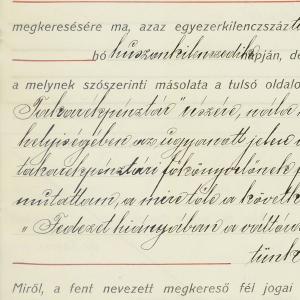 megkeresésére ma, azaz egyezerkilenczszáz
bó huszonkilenczedik napján, de
a melynek szószerinti másolata a tulsó oldalo
Takarékpénztár" részére, nála
helyiségében az ugyanott jelen
takarékpénztári főkönyvelőnek f
mutattam, a mire tőle, a követk
„Fedezet hiányában a váltó
tünk
Miről, a fent nevezett megkereső fél jogai